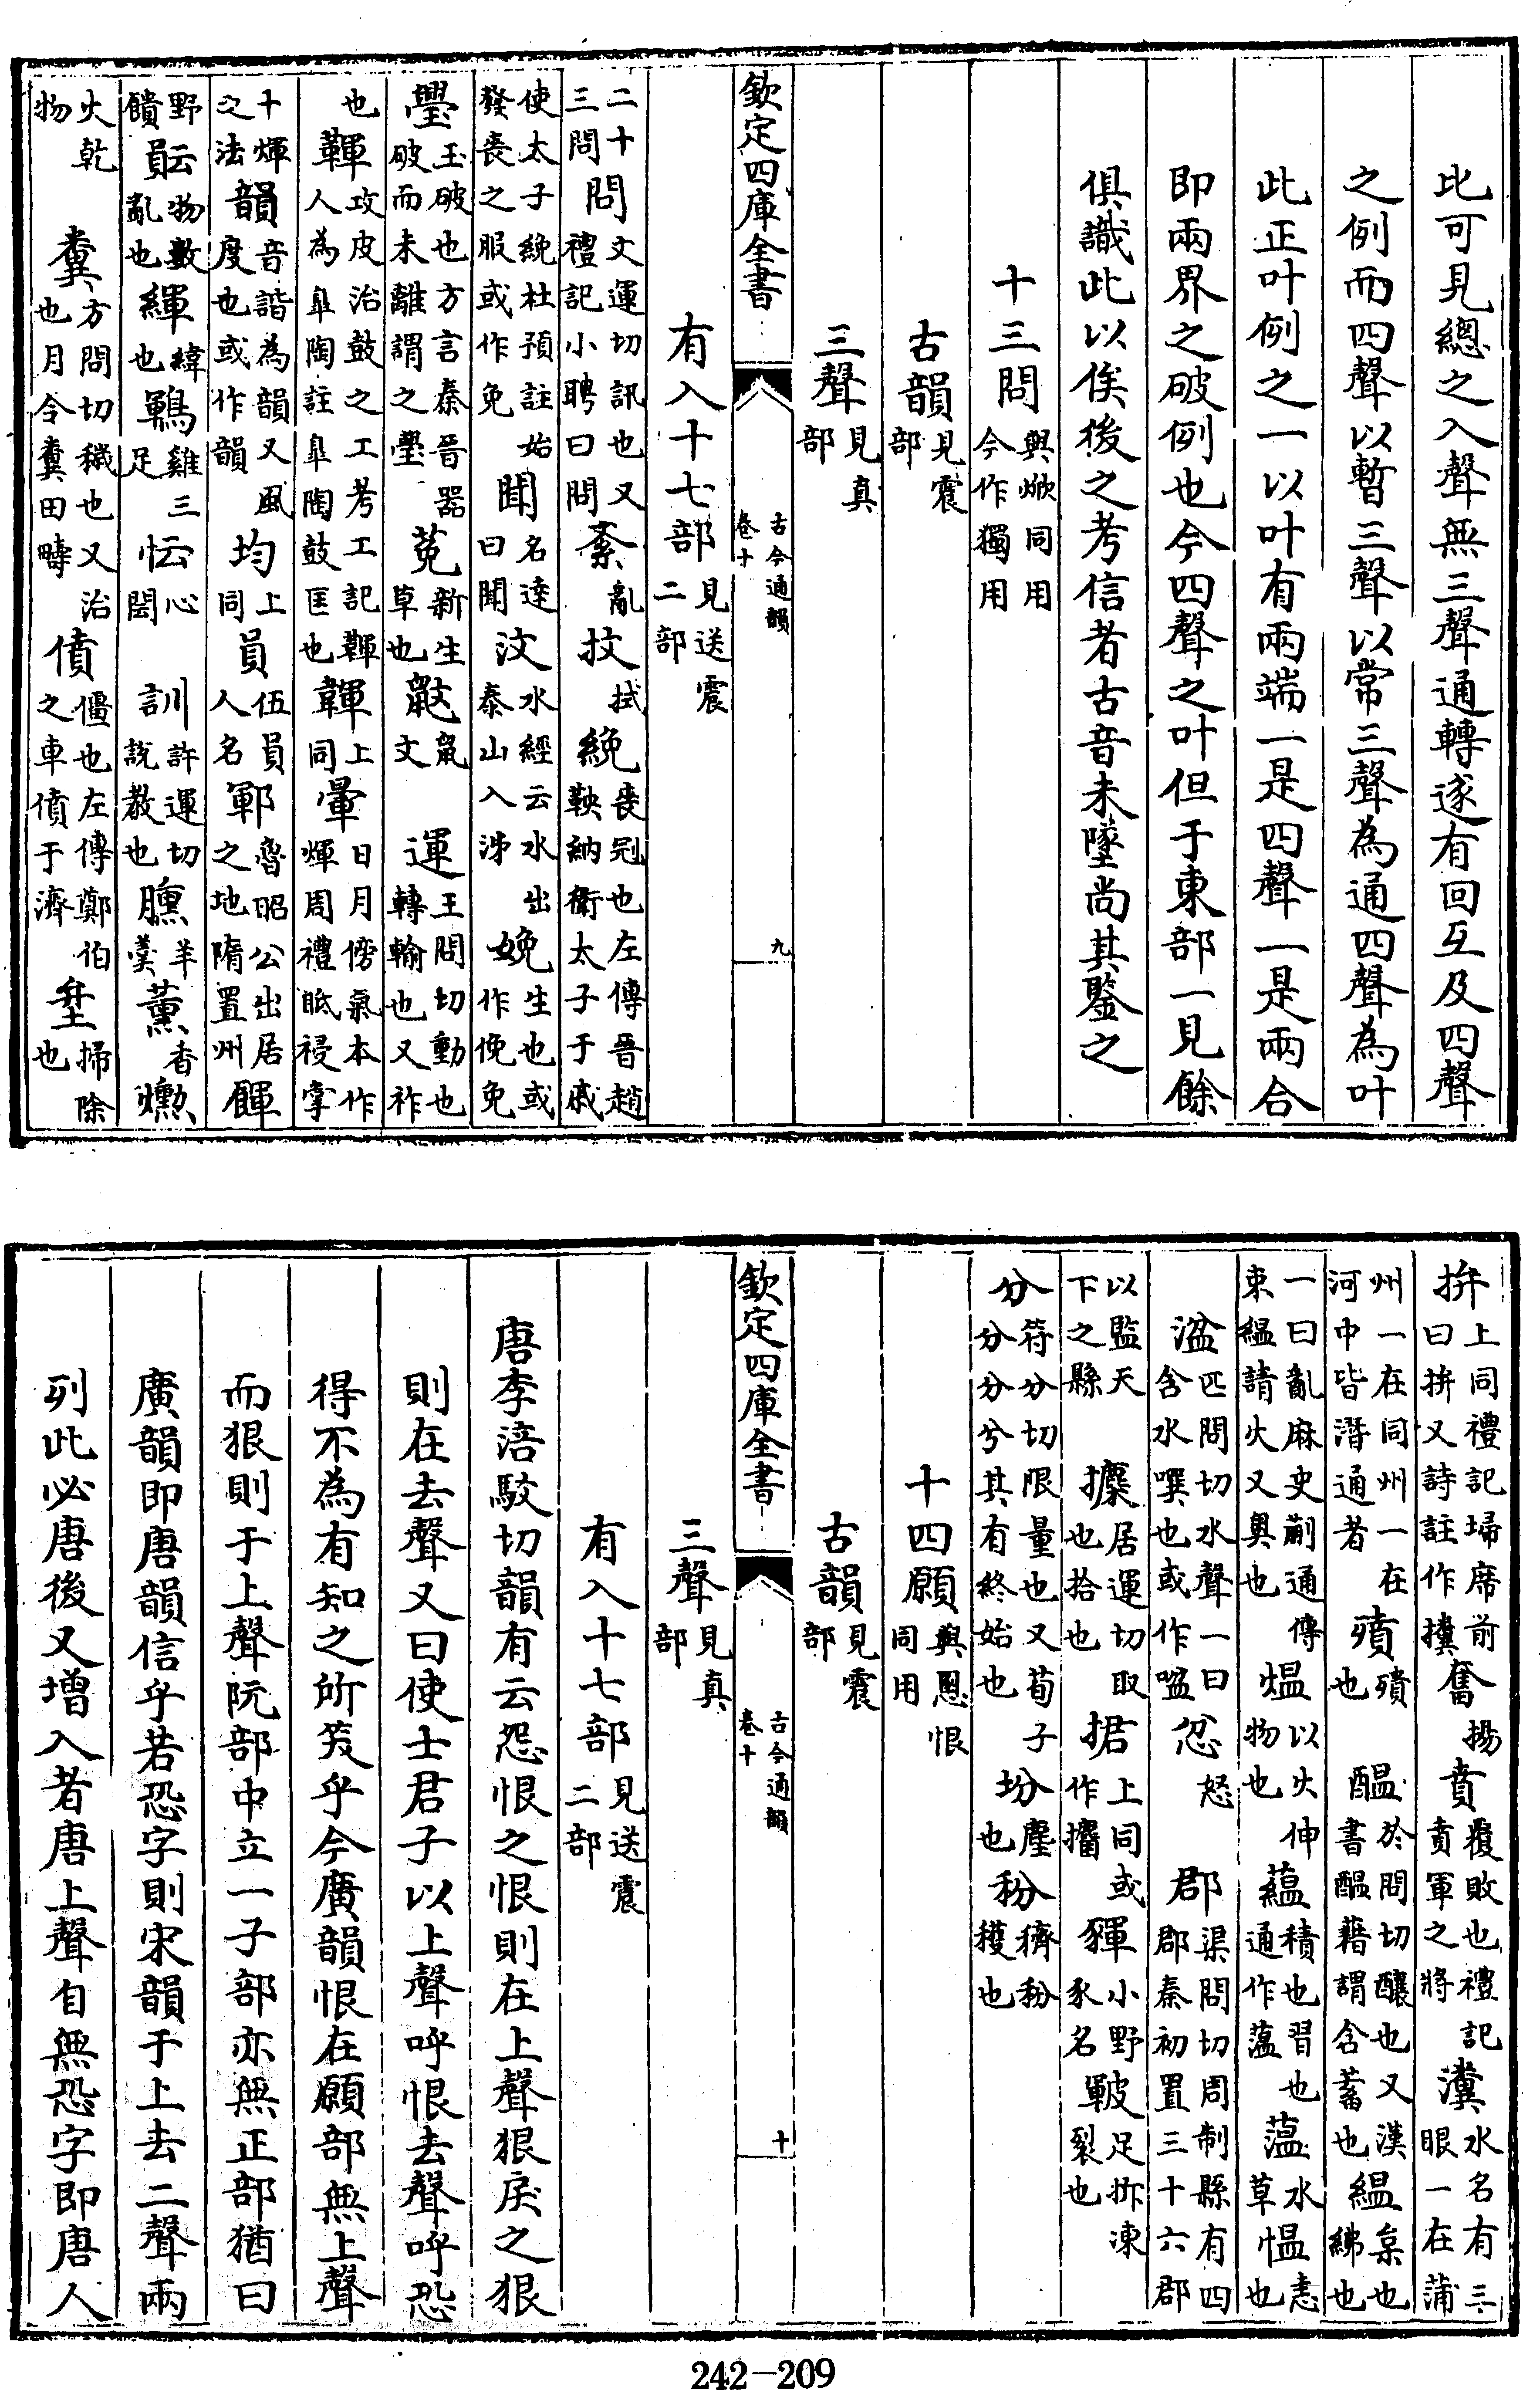 比可見總之入聲無三聲通轉遂有回互及四聲
之例而四聲以暫三聲以常三聲為通四聲為叶
此正叶例之一以叶有兩端一是四聲一是兩合
即兩界之破例也今四聲之叶但于東部一見餘
俱識此以俟後之考信者古音未墜尚其鑒之
十三問與焮同用今作獨用
古韻見震部
三聲見真部
欽定四庫全書 古今通韻卷十 九
有入十七部見送震二部
二十三問問文運切訊也又禮記小聘曰問紊亂抆拭絻喪冠也左傳晉趙鞅納衛太子于戚
使太子絻杜預註始發喪之服或作免聞名達曰聞汶水經云水出泰山入泲娩生也或作俛免
璺玉破也方言秦晉器破而未離謂之璺莬新生草也鼤鼠文運王問切動也轉輸也又祚
也鞾攻皮治鼓之工考工記鞾人為臯陶註臯陶鼓匡也韗上同暈日月傍氣本作煇周禮眡祲掌
十煇之法韻音諧為韻又風度也或作韻均上同員伍員人名鄆魯昭公出居之地隋置州餫
野饋員云物數亂也緷緯也鶤雞三足忶心悶訓許運切說教也臐羊羹薰香爋
火乾物糞方問切穢也又治也月令糞田疇僨僵也左傳鄭伯之車僨于濟坌掃除也
拚上同禮記埽席前曰拚又詩註作㩳奮揚賁覆敗也禮記賁軍之將瀵水名有三眼一在蒲
州一在同州一在河中皆潛通者殨殨也醞於問切釀也又漢書醞藉謂含蓄也縕枲也紼也
一曰亂麻史蒯通傳束縕請火又奧也熅以火伸物也蘊積也習也通作薀薀水草愠恚也
湓匹問切水聲一曰含水噀也或作㖹忿怒郡渠問切周制縣有四郡秦初置三十六郡
以監天下之縣攈居運切取也拾也捃上同或作攟䝍小野豕名皸足坼凍裂也
分符分切限量也又荀子分分兮其有終始也坋塵也秎穧秎穫也
十四願與慁恨同用
古韻見震部
欽定四庫全書 古今通韻卷十 十
三聲見真部
有入十七部見送震二部
唐李涪駮切韻有云怨恨之恨則在上聲狠戾之狠
則在去聲又曰使士君子以上聲呼恨去聲呼恐
得不為有知之所笑乎今廣韻恨在願部無上聲
而狠則于上聲阮部中立一子部亦無正部猶曰
廣韻即唐韻信乎若恐字則宋韻于上去二聲兩
列此必唐後又增入者唐上聲自無恐字即唐人
242-209